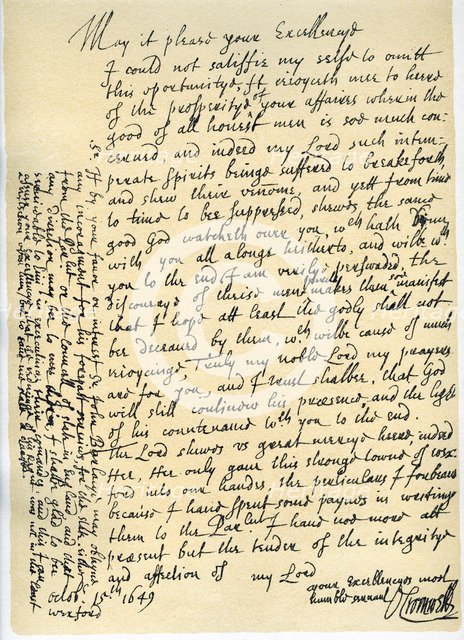 May it please your Excellencye
I could not satisfie my selfe to omitt
this oportunitye, Itt rejoyceth mee to heere
of the prosperitye of your affaires wherein the
good of all honest men is soe much con-
cerned, and indeed my Lord such intem-
perate Spirits beinge suffered to breake forth
and shew their venome, and yett from time
to time to bee suppressed, shewes the same
good God watcheth over you, wch hath binn
with you all alonge hitherto, and wilbe wth
you to the end I am verily perswaded, the
of theise men makes them soe manifest
that I hope att least the godly shall not
bee deceaved by them, wch wilbe cause of much
rejoycinge, Truly my noble Lord my prayers
are for you, and I trust shalbee, that God
will still continew his presence, and the light
of his countenance wth you to the end.
The Lord shewes us great mercye heere, indeed
Hee, Hee only gave this stronge towne of wex-
ford into our handes, the perticulars I forbeare
because I have spent some paynes in writinge
them to the Parlnt I have noe more att
present but the tender of the integritye
and affection of my Lord
your Excellencyes most
humble servant
O Cromwell
Octob. 15th 1649
wexford
Sr If by your favor or interest Sr John may obteyne
any incoragment for his
from the Parlnt or the Councell of State in England and that
any direction may bee to mee therein, I shalbe glad to bee